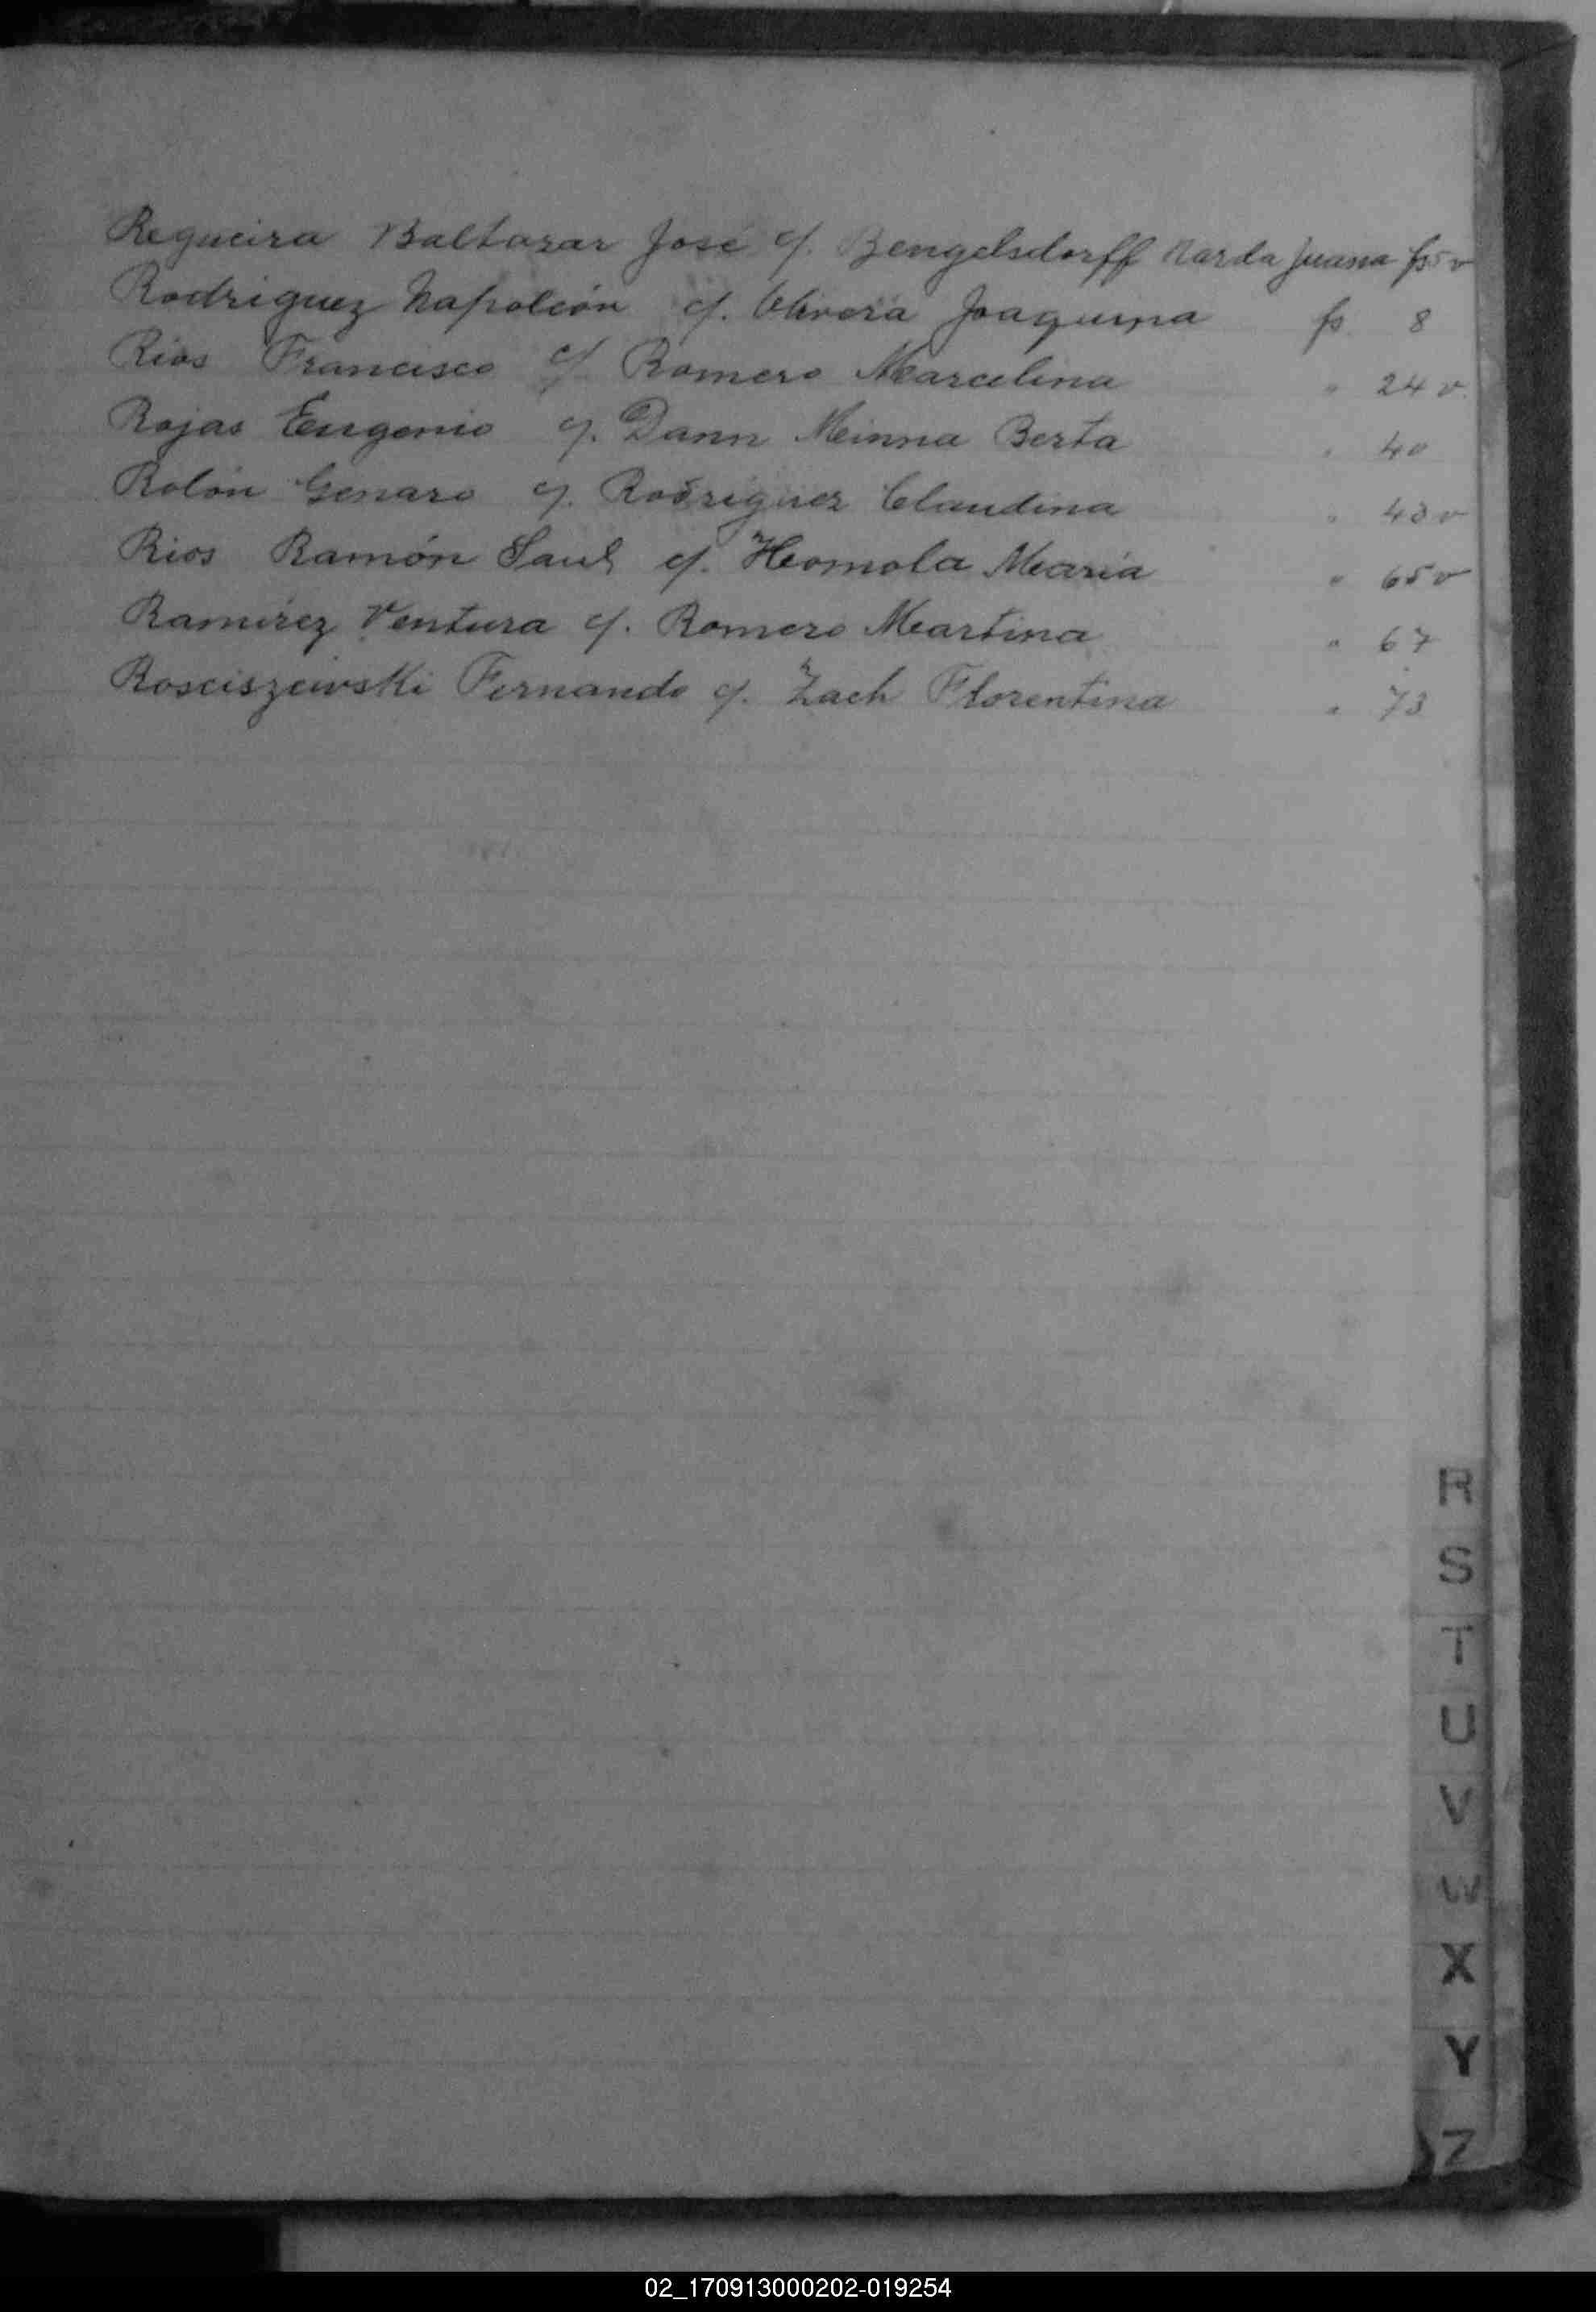 Regueira Baltazar José c/. Bengelsdorff Narda Juana fs 5 v
Rodriguez Napoleón c/. Olivera Joaquina fs 8
Rios Francisco c/ Romero Marcelina " 24 v.
Rojas Eugenio c/. Dann Minna Berta " 40
Rolón Genaro c/. Rodriguez Claudina " 43 v
Rios Ramón Saul c/. Homola María " 65 v
Ramírez Ventura c/. Romero Martina " 67
Rosciszewski Fernando c/. Zach Florentina " 73
R
S
T
U
V
W
X
Y
Z
02_170913000202-019254